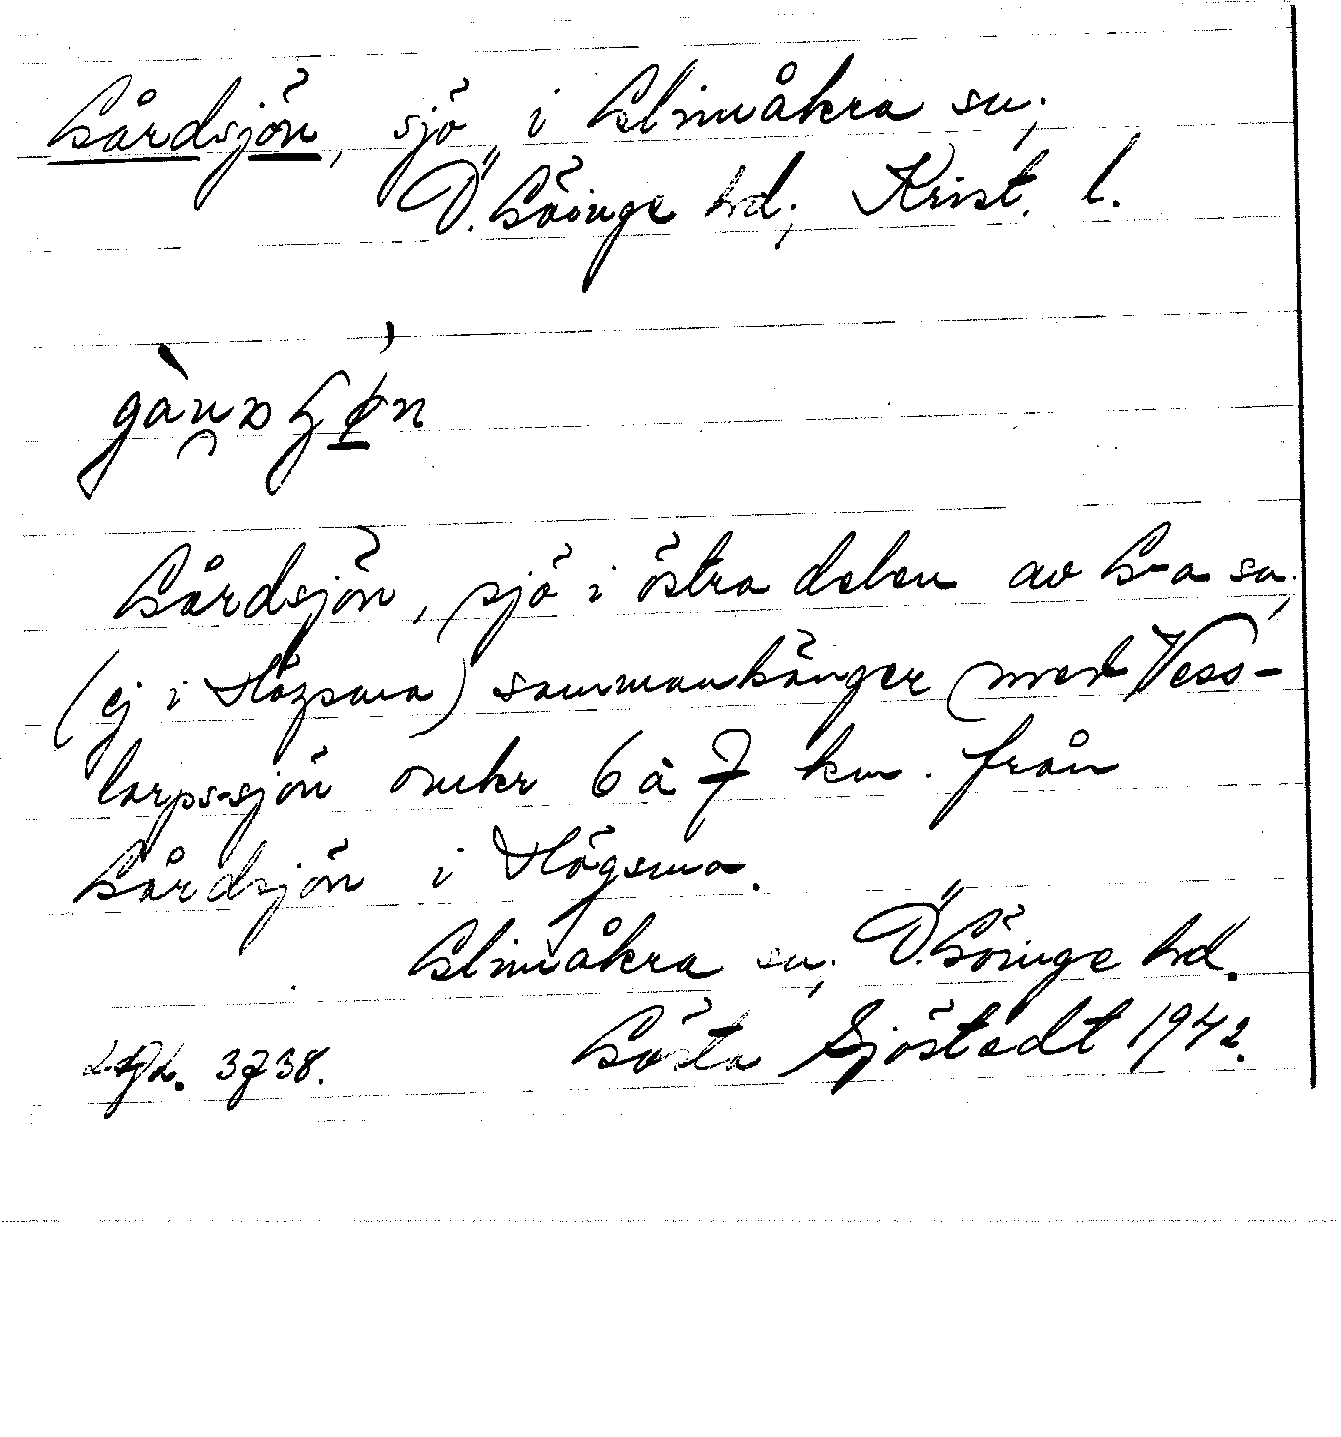 Gårdsjön, sjö i Glimåkra sn,
Ö. Göinge hd, Krist. l.
Gårdsjön, sjö i östra delen av G-a sn,
(ej i Högsma) sammanhänger med Vess-
larpssjön omkr 6 à 7 km. från
Gårdsjön i Högsma.
Glimåkra sn, Ö. Göinge hd.
3738. Gösta Sjöstedt 1942.